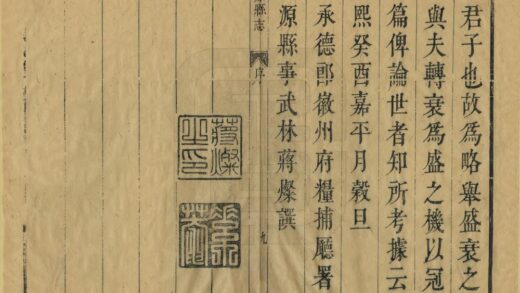 君子也故爲略舉盛衰之
與夫轉衰爲盛之機以冠
篇俾論世者知所考據云
熙癸酉嘉平月穀旦
承德郎徽州府糧捕廳署
源縣事武林蔣燦譔
縣志
序
九
蔣燦之印